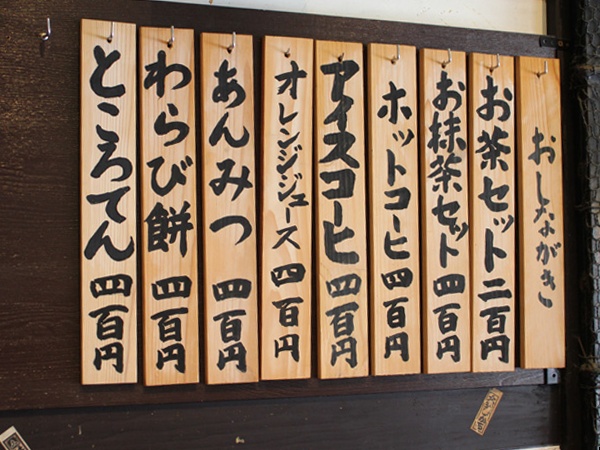 おしながき
お茶セット 二百円
お抹茶セット 四百円
ホットコーヒ 四百円
アイスコーヒ 四百円
オレンジジュース 四百円
あんみつ 四百円
わらび餅 四百円
ところてん 四百円